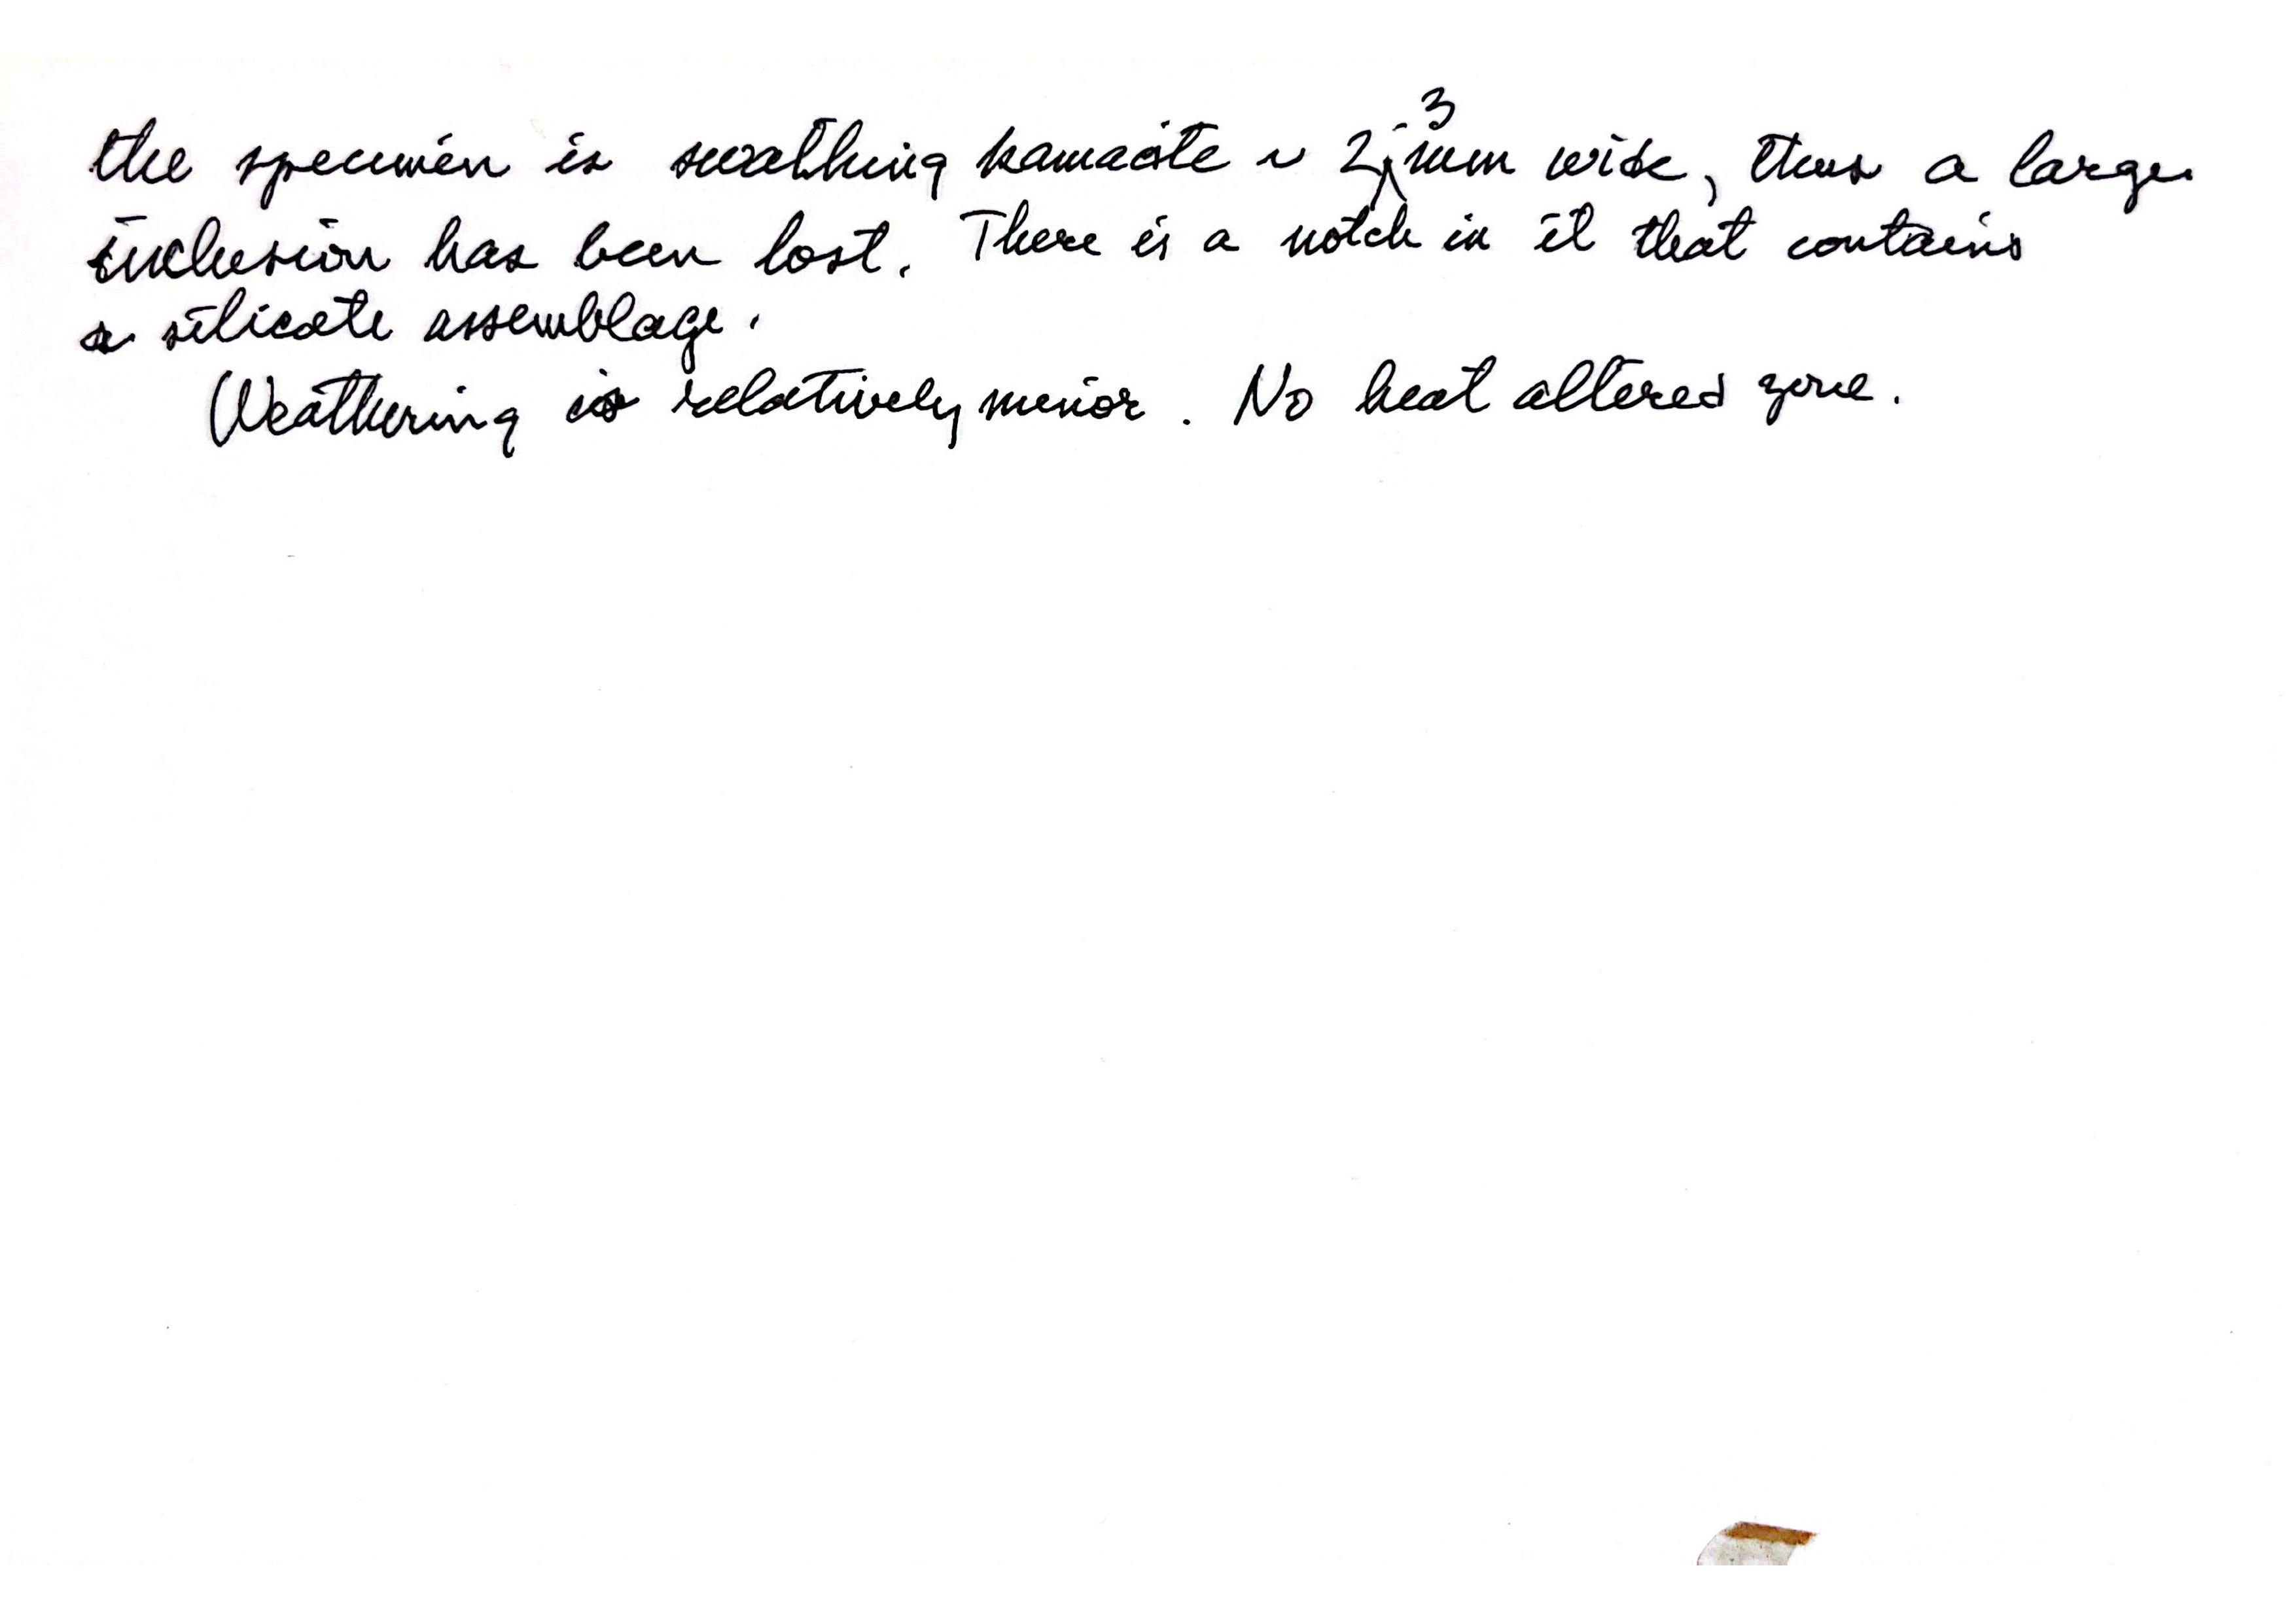 the specimen is swathing kamacite ~ 2-3 mm wide, thus a large
inclusion has been lost. There is a notch in it that contains
a silicate assemblage.
Weathering is relatively minor. No heat altered zone.